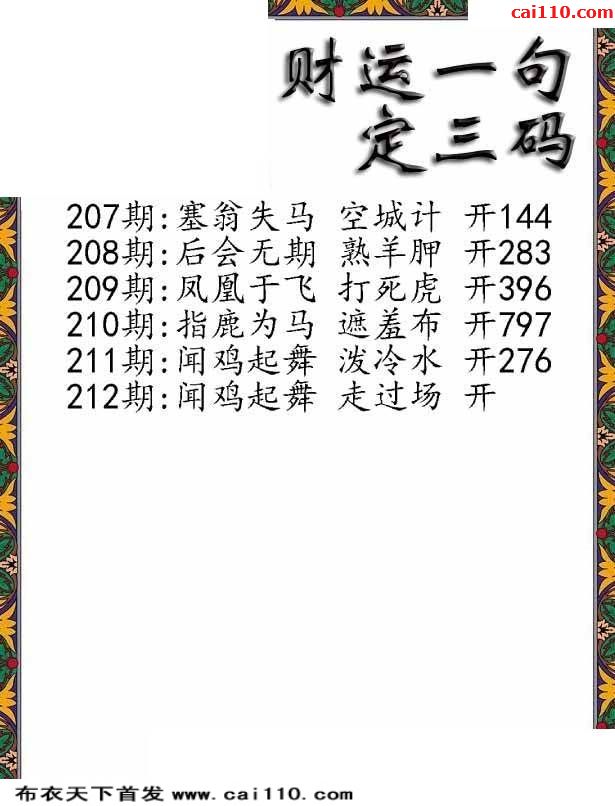 cai110.com
财运一句
定三码
207期:塞翁失马 空城计 开144
208期:后会无期 熟羊胛 开283
209期:凤凰于飞 打死虎 开396
210期:指鹿为马 遮羞布 开797
211期:闻鸡起舞 泼冷水 开276
212期:闻鸡起舞 走过场 开
布衣天下首发 www.cai110.com